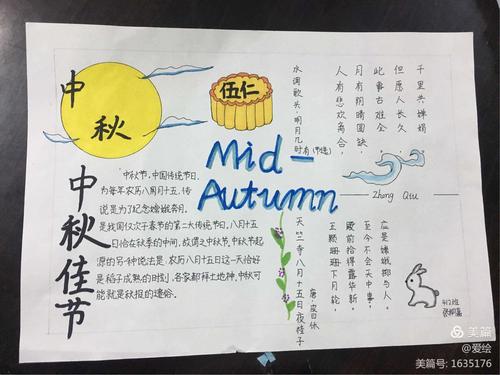 中
秋
伍仁
Mid-
Autumn
中秋佳节
中秋节,中国传统节日.
为每年农历八月十五,传
说是为了纪念嫦娥奔月.
是我国仅次于春节的第二大传统节日。八月十五
日恰在秋季的中间,故谓之中秋节.中秋节起
源的另一种说法是:农历八月十五这一天恰好
是稻子成熟的时刻,各家都拜土地神,中秋可
能就是秋报的遗俗。
水调歌头·明月几
时有(节选)
人有悲欢离合,
月有阴晴圆缺,
此事古难全,
但愿人长久,
千里共婵娟。
Zhong Qiu
天竺寺八月十五日夜桂子
唐·皮日休
玉颗珊珊下月轮,
殿前拾得露华新,
至今不会天中事,
应是嫦娥掷与人。
美篇
@爱绘
美篇号: 1635176